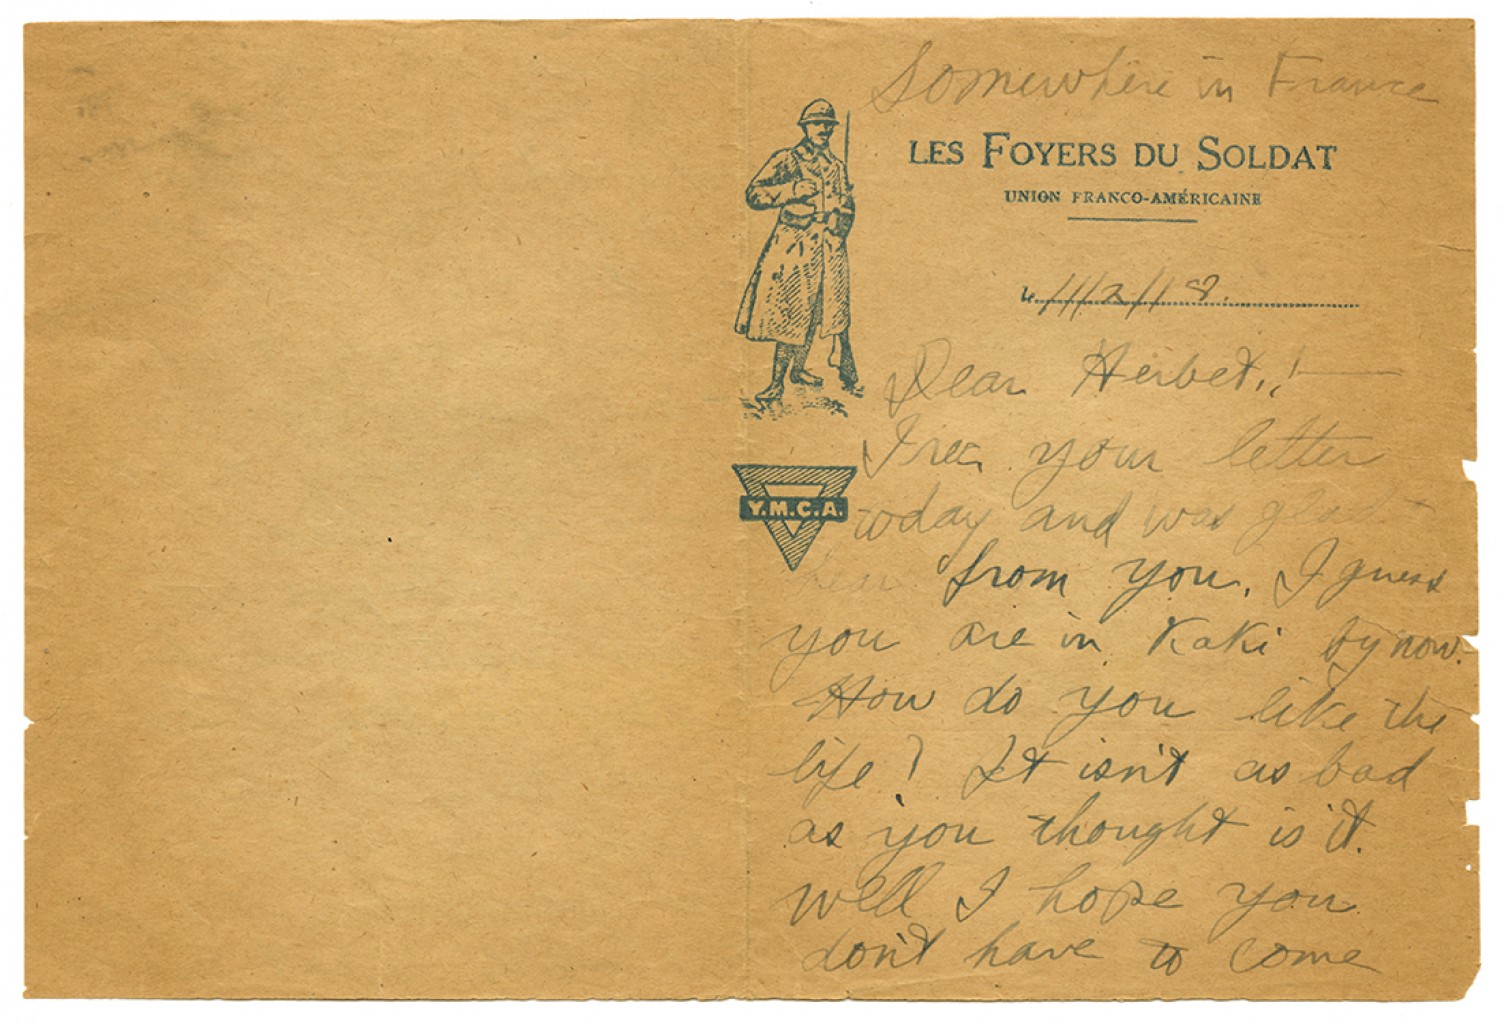 Somewhere in France
LES FOYERS DU SOLDAT
UNION FRANCO-AMÉRICAINE
le 11/2/18.
Dear Herbet,!
I rec. your letter
Y.M.C.A.
today and was glad
hear from you. I guess
you are in Kaki by now.
How do you like the
life? It isn't as bad
as you thought is it.
well I hope you
don't have to come